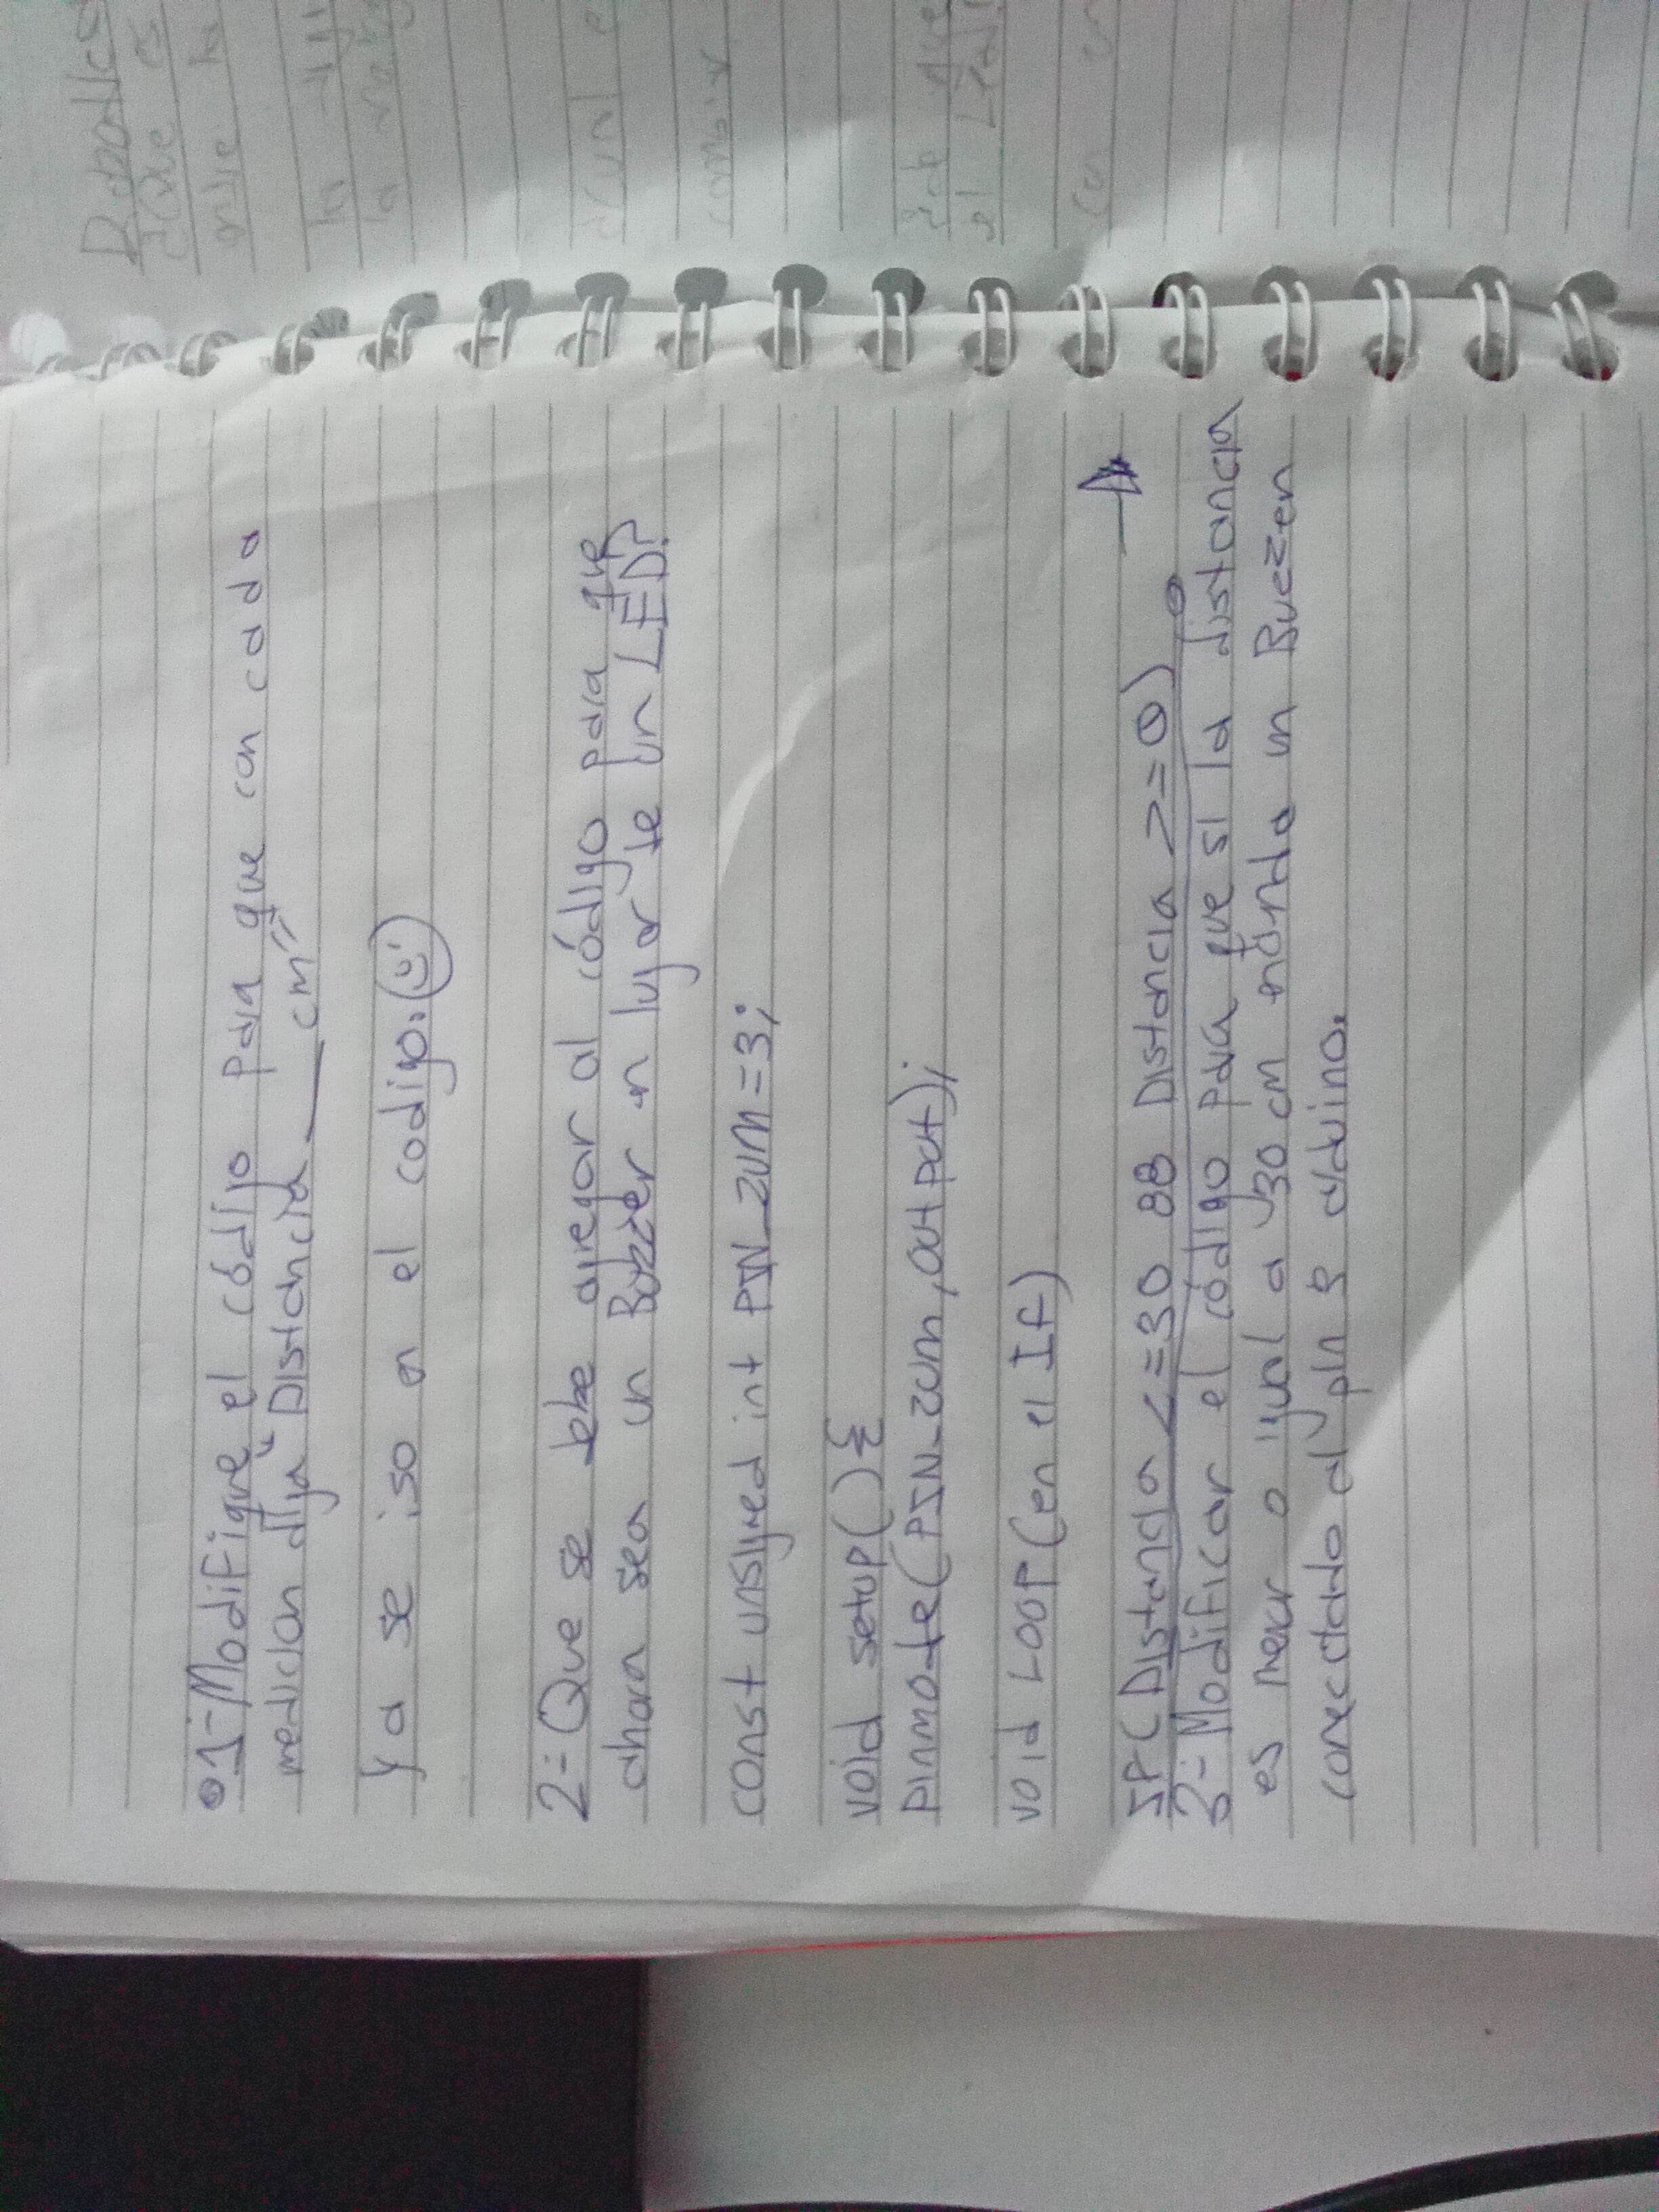 1-Modifique el código para que con cada
medicion diga "Distancia ____ cm"
Ya se iso a el codigo.
2-Que se debe agregar al código para que
ahora sea un Buzzer en lugar de un LED?
const unsigned int PIN_zum=3;
void setup(){
pinmode(PIN_zum, output);
void LOOP(en el If)
IF(Distancia <=30 && Distancia >=0)
3-Modificar el código para que si la distancia
es menor o igual a 30 cm prenda un Buzzer
conectado al pin 8 arduino.
Dando
que